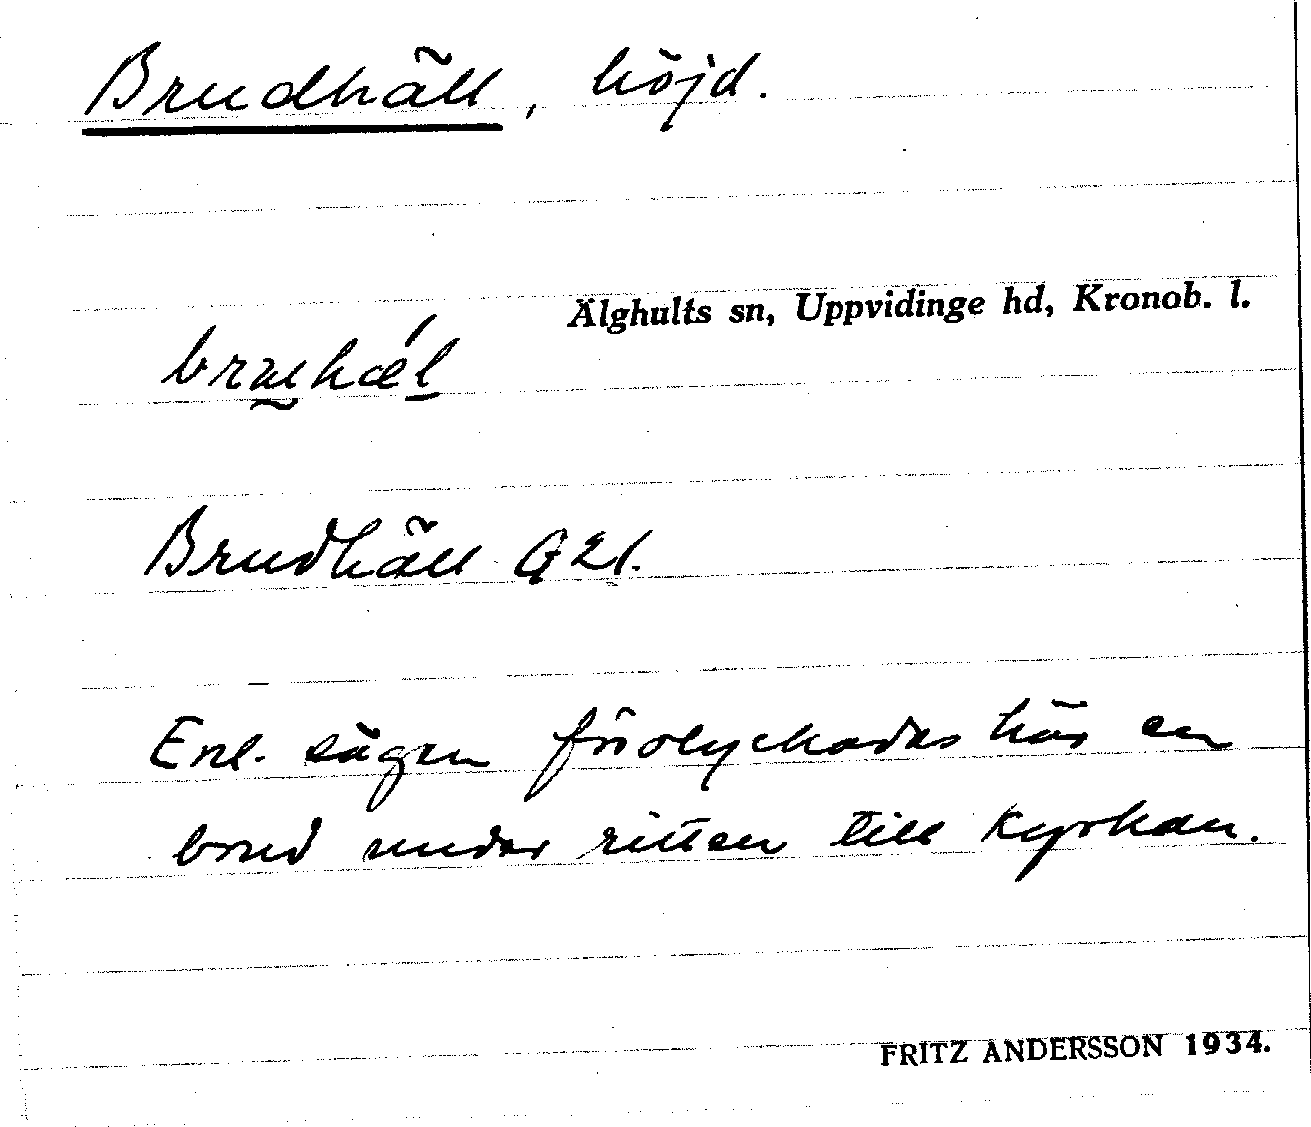 Brudhäll, höjd.
Älghults sn, Uppvidinge hd, Kronob. l.
Brudhäll G 21.
Enl. sägen förolyckades här en
brud under ritten till Kyrkan.
FRITZ ANDERSSON 1934.